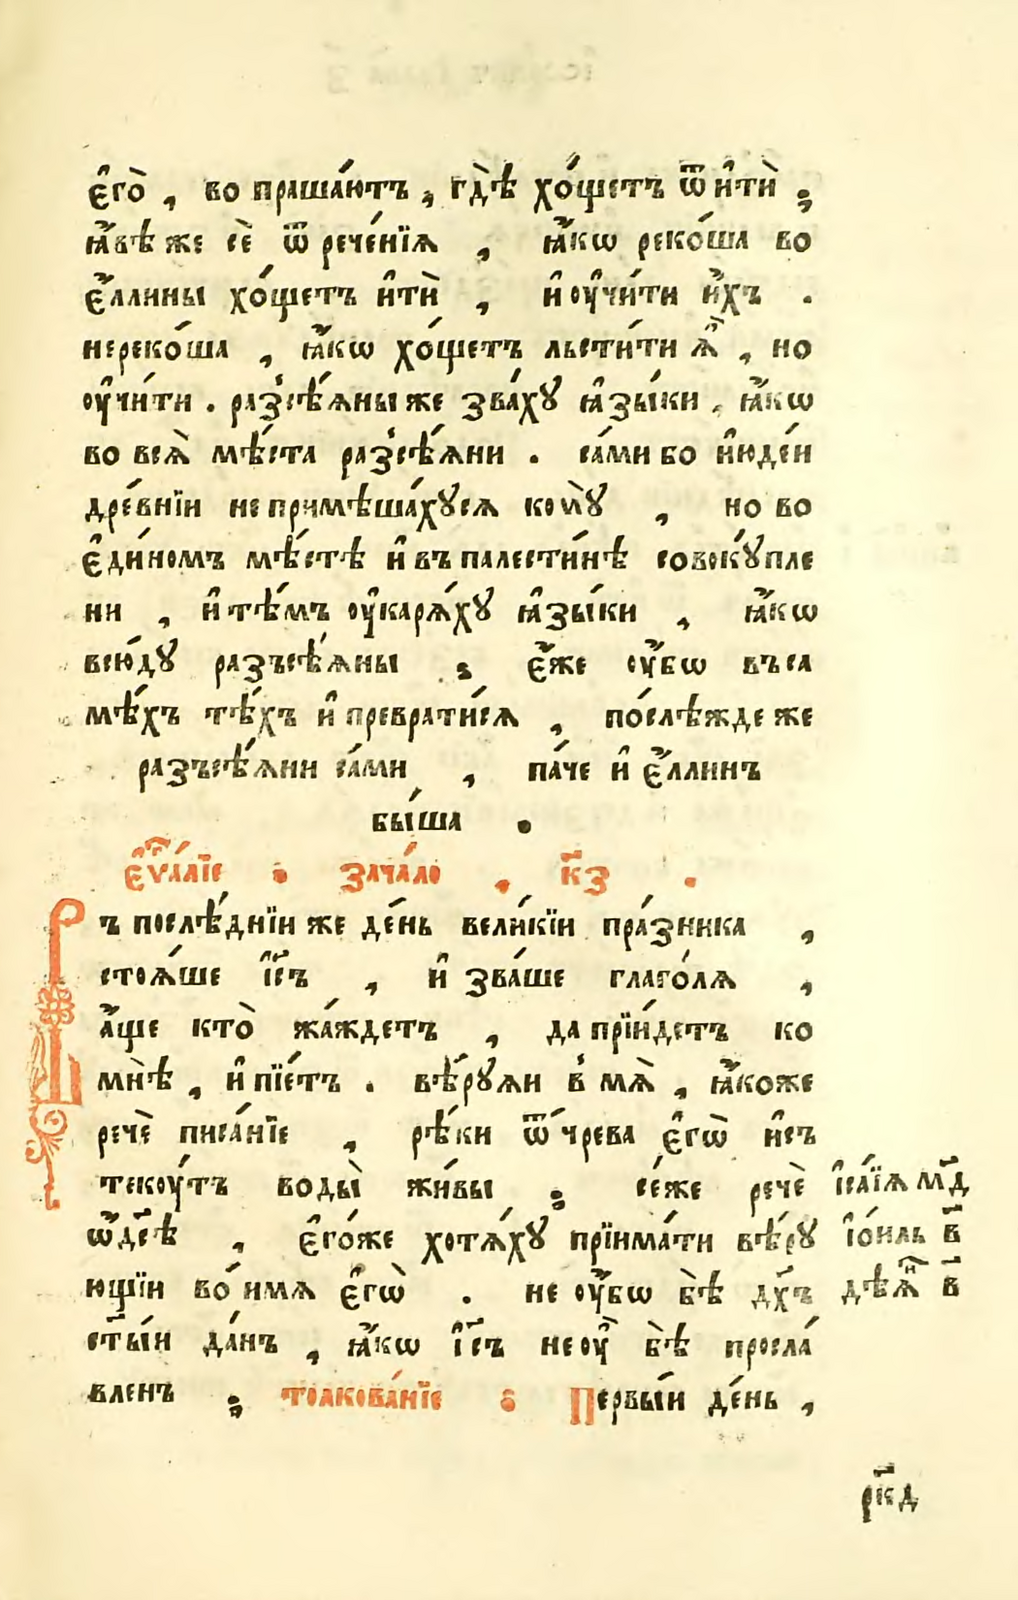 є҆го̀ , во праша́ютъ , гдѣ̀ хо́щетъ ѿи҆тѝ ;
ꙗ҆́вѣ же сѐ ѿ рече́нїѧ , ꙗ҆́кѡ реко́ша во
є҆́ллины хо́щетъ и҆тѝ , и҆ ᲂу҆чи́ти и҆́хъ .
нереко́ша , ꙗ҆́кѡ хо́щетъ льсти́ти ѧ҆̀ , но
ᲂу҆чи́ти . разсѣ́ѧны же зва́хꙋ ꙗ҆зы́ки , ꙗ҆́кѡ
во всѧ̀ мѣ́ста разсѣ́ѧни . са́ми бо и҆юде́и
дре́внїи не примѣша́хꙋсѧ комꙋ̀ , но во
є҆ди́номъ мѣ́стѣ и҆ въ палести́нѣ совокꙋ́пле
ни , и҆ тѣ́мъ ᲂу҆карѧ́хꙋ ꙗ҆зы́ки , ꙗ҆́кѡ
всю́дꙋ разъсѣ́ѧны ; є҆́же ᲂу҆́бѡ въ са
мѣ́хъ тѣ́хъ и҆ преврати́сѧ , послѣ́жде же
разъсѣ́ѧни са́ми , па́че и҆ є҆́ллинъ
бы́ша .
є҆ѵⷢ҇а́лїе . зача́ло , к҃з .
Въ послѣ́днїи же де́нь вели́кїи пра́зника ,
стоѧ́ше і҆с҃ъ , и҆ зва́ше глаго́лѧ ,
а҆́ще кто̀ жа́ждетъ , да прїи́детъ ко
мнѣ̀ , и҆ пїе́тъ . вѣ́рꙋѧи в мѧ̀ , ꙗ҆́коже
речѐ писа́нїе , рѣ́ки ѿ чре́ва є҆гѡ̀ и҆съ
текᲂу́тъ воды̀ жи́вы ; се́же речѐ і҆са́їѧ м҃д
ѡ҆ дс҃ѣ , є҆го́же хотѧ́хꙋ прїима́ти вѣ́рꙋ і҆о́иль в҃
ющїи во́ имѧ є҆гѡ̀ . не ᲂу҆́бѡ бѣ̀ дх҃ъ дѣѧⷩ҇ в҃
ст҃ы́и да́нъ , ꙗ҆́кѡ і҆с҃ъ не ᲂу҆̀ бѣ̀ просла́
вленъ ; толкова́нїе . Первы́и де́нь ,
рк҃д